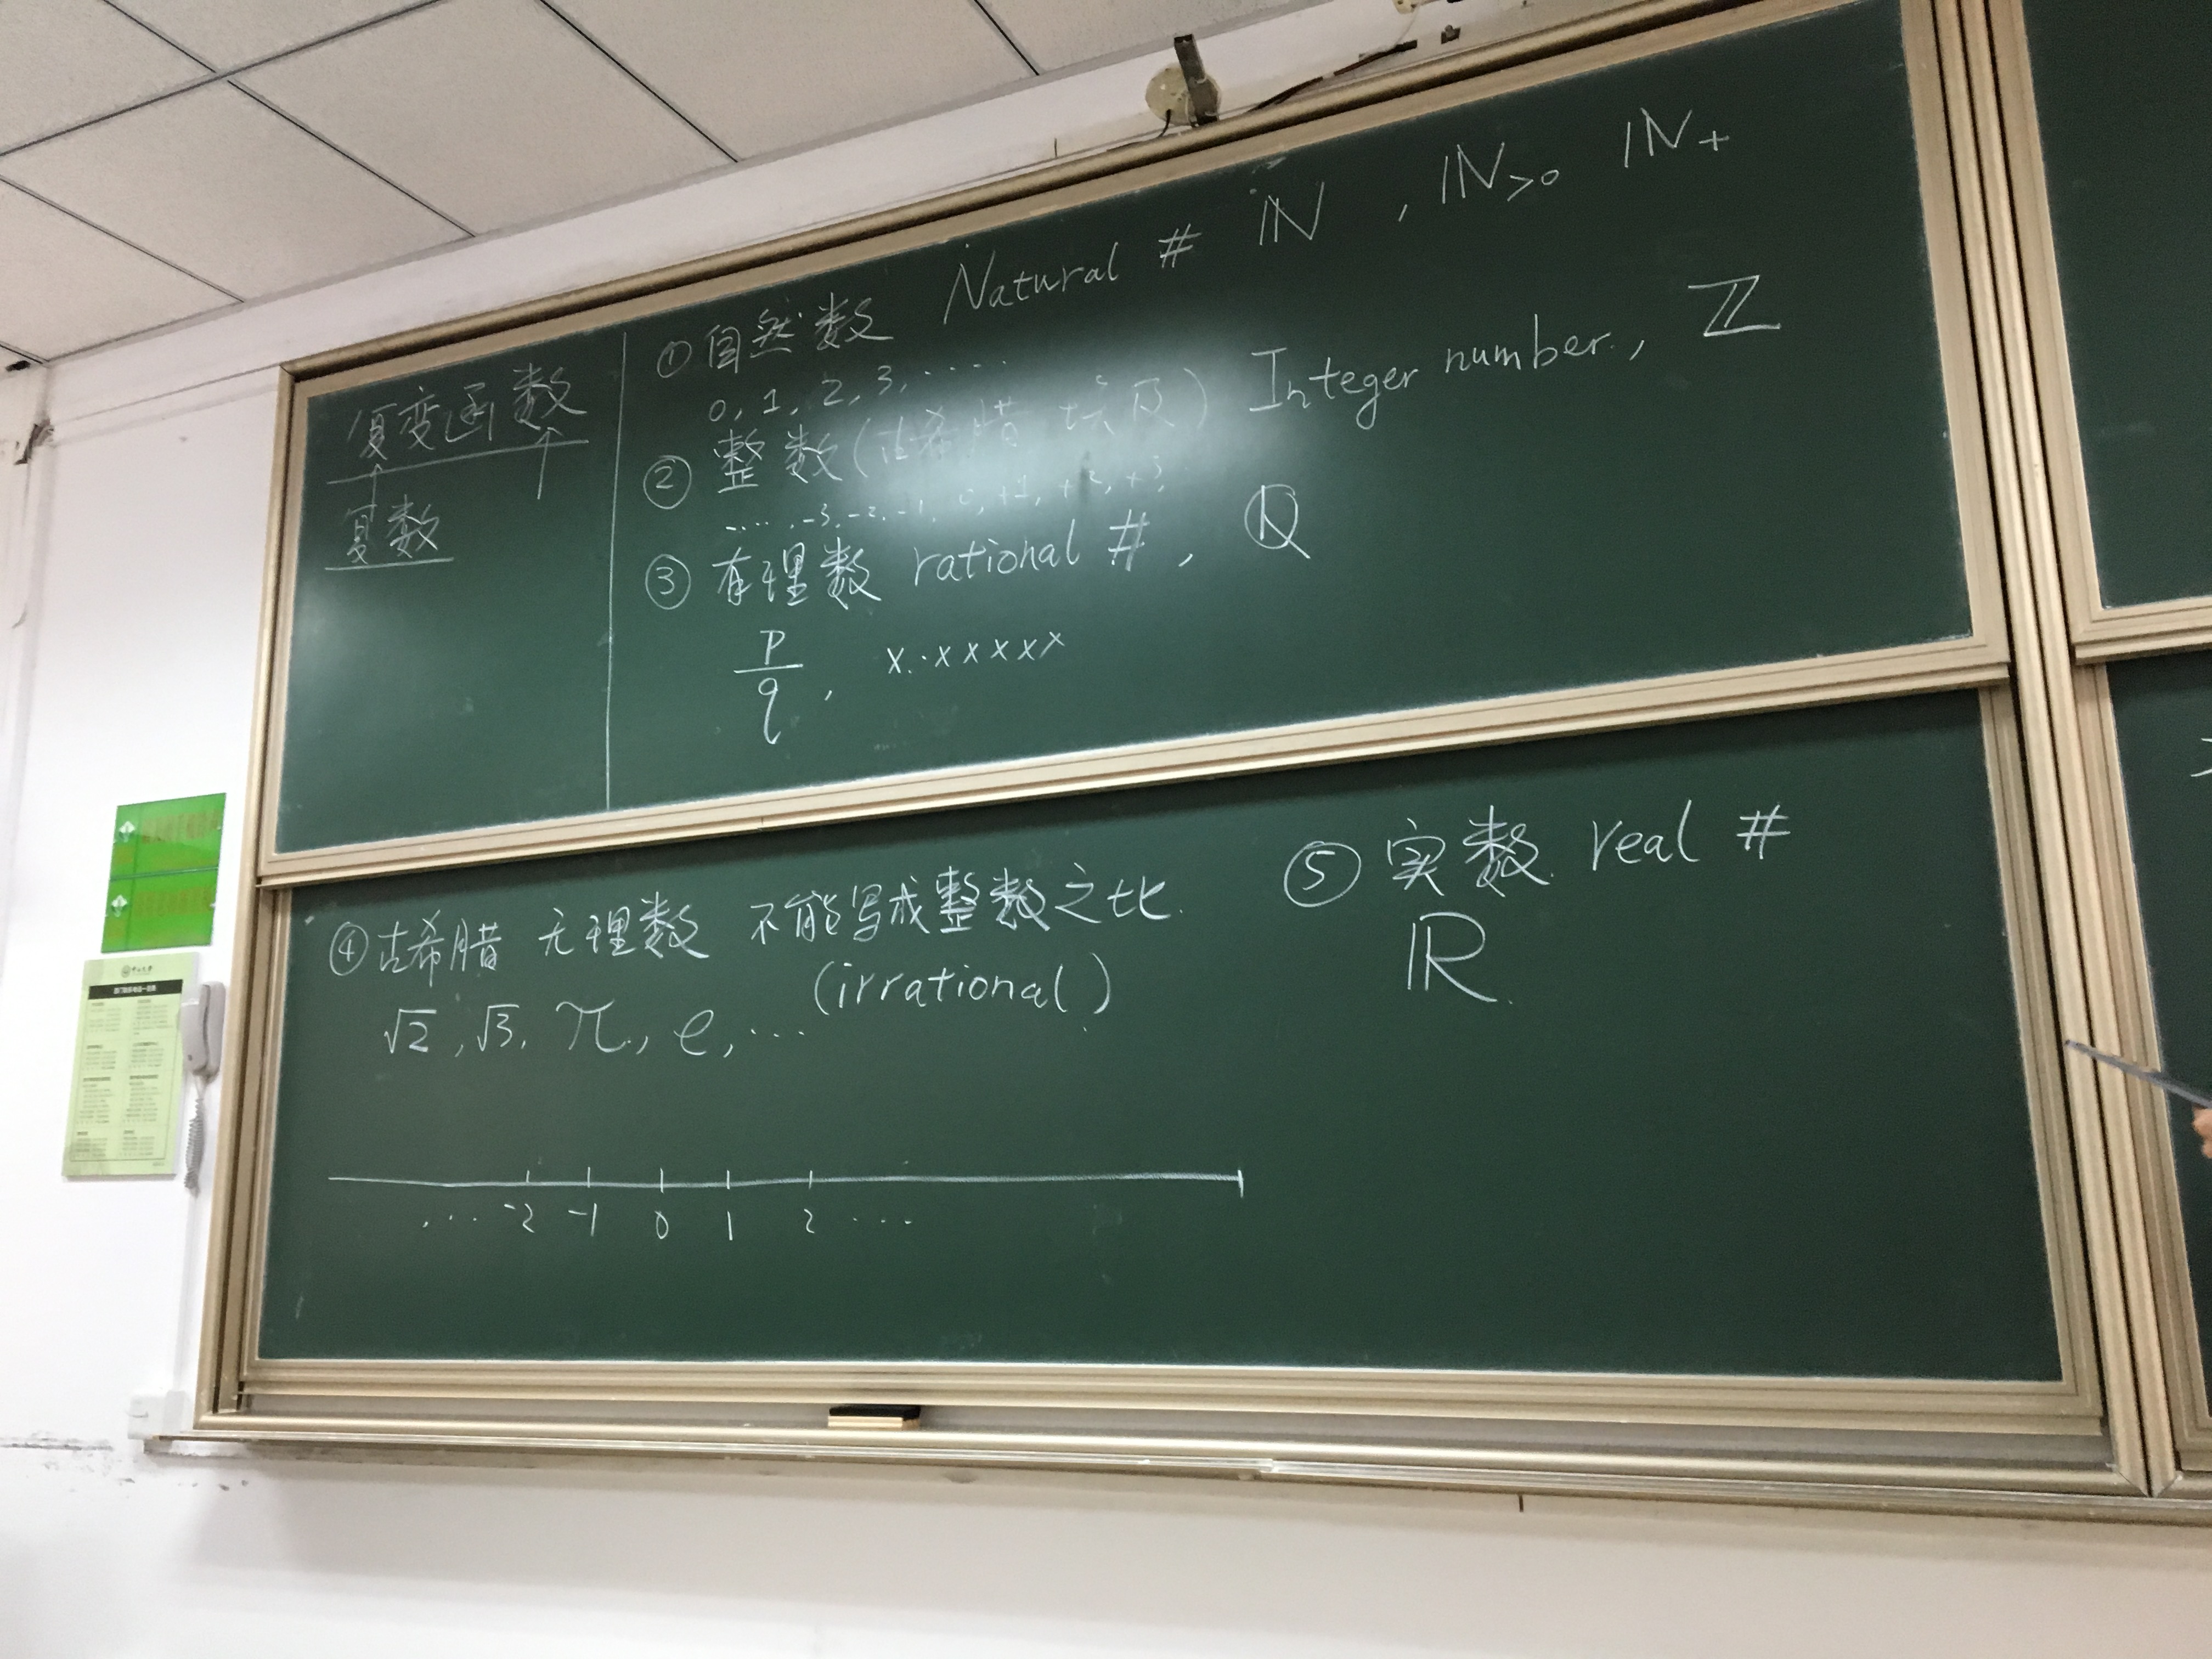 复变函数
复数
① 自然数 Natural # ℕ , ℕ>0 ℕ+
0, 1, 2, 3, ....
② 整数 (古希腊 埃及) Integer number., ℤ
....., -3, -2, -1, 0, +1, +2, +3,
③ 有理数 rational #, ℚ
p/q, x.xxxxxx
④ 古希腊 无理数 不能写成整数之比.
(irrational)
√2, √3, π, e, ...
... -2 -1 0 1 2 ...
⑤ 实数 real #
ℝ